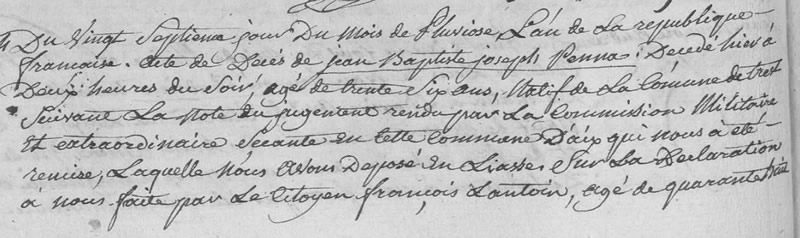 Du Vingt Septieme jour Du Mois de Pluviose L'an de La republique
francaise. Acte de Decés de jean Baptiste joseph Penna: Decedé hier à
Deux heures du Soir, agé de trente Six ans, Natif de La Comune de tret
Suivant La Note du jugement rendu par La Commission Militaire
Et extraordinaire Seante En Cette Commune D'aix qui nous à été
remise, Laquelle Nous avons Deposé En Liasse Sur La Declaration
à nous faite par Le Citoyen françois Lantoin, agé de quarante huit